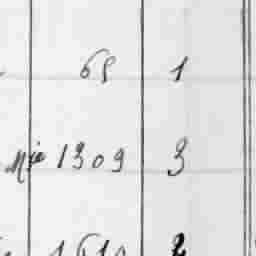 65 1
Mie 1309 3
2